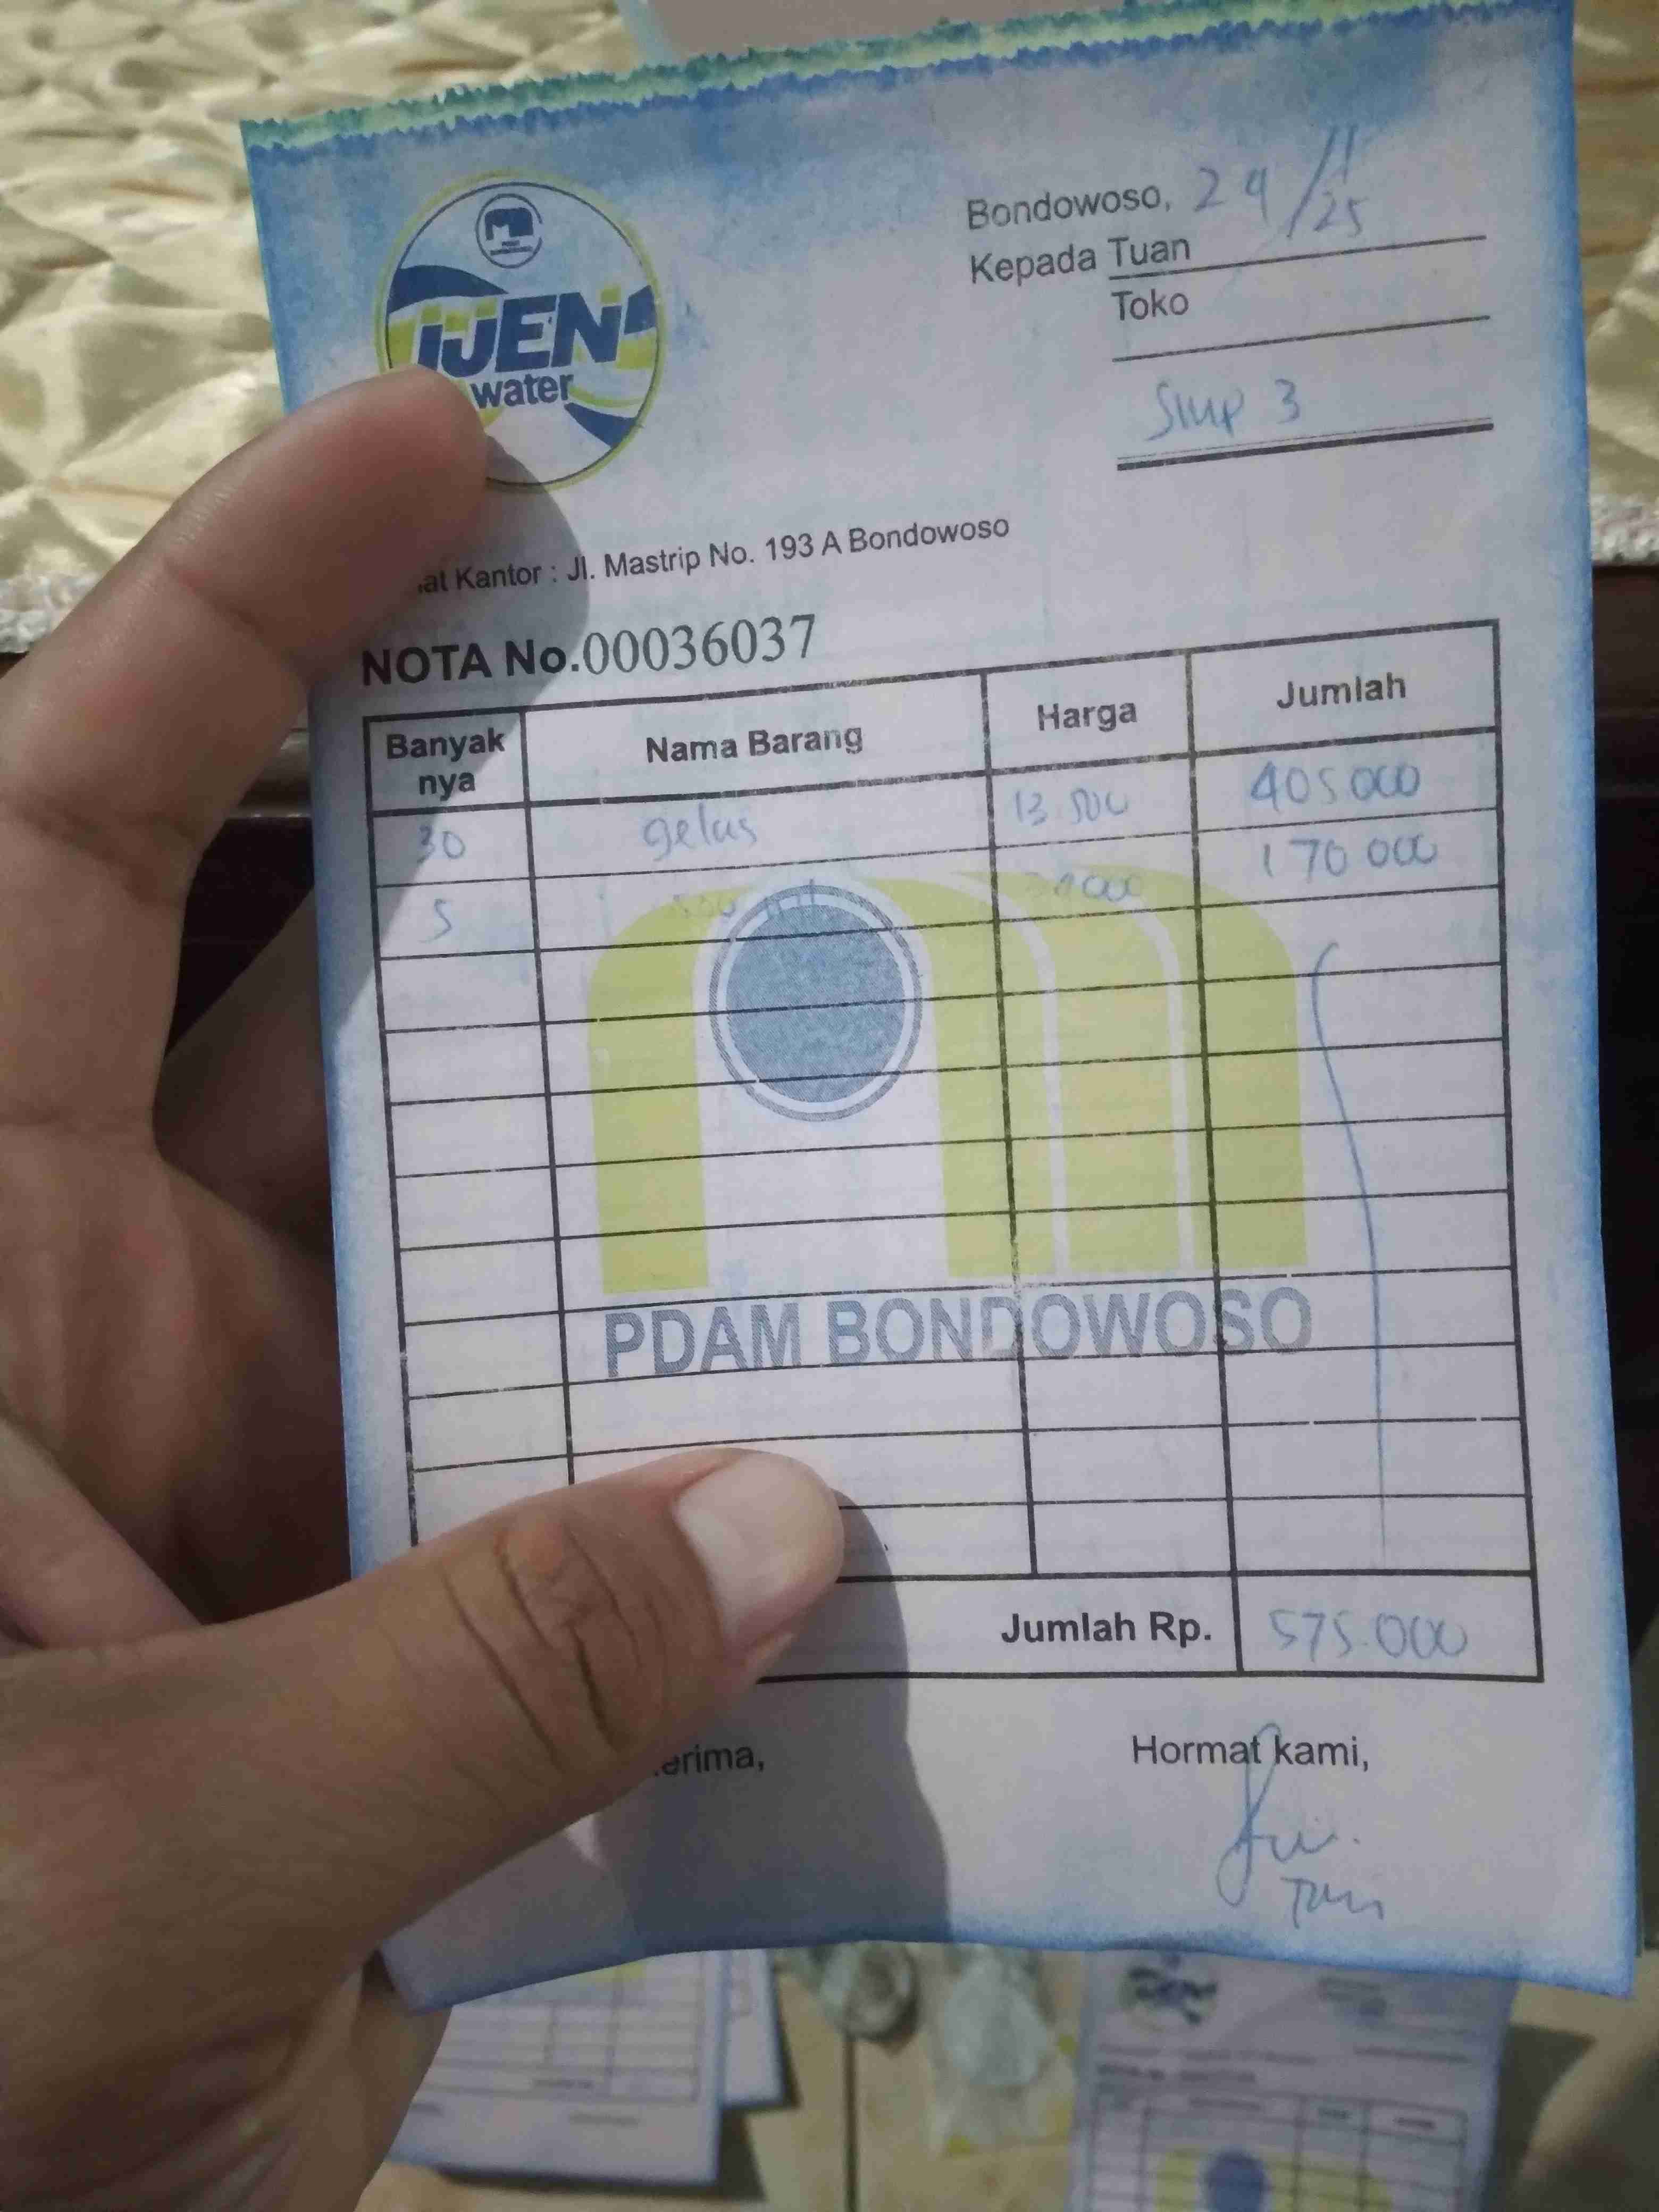 IJEN
water
Bondowoso, 29/11/25
Kepada Tuan
Toko
Smp 3
at Kantor : Jl. Mastrip No. 193 A Bondowoso
NOTA No.00036037
Banyak nya Nama Barang Harga Jumlah
30 gelas 13.500 405000
5 500 ml 34000 170 000
PDAM BONDOWOSO
Jumlah Rp. 575.000
erima, Hormat kami,